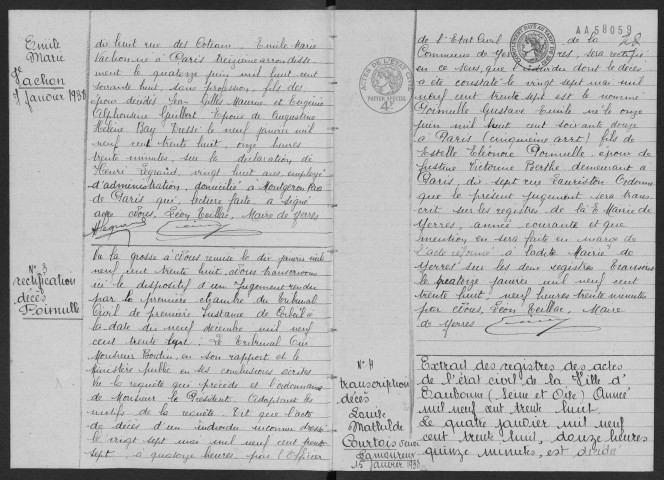 Emile
Marie
Vachon
9 janvier 1938
dix huit rue des Coteaux, Emile Marie
Vachon né à Paris treizième arrondisse-
ment le quatorze juin mil huit cent
soixante huit, sans profession, fils des
époux décédés Jean Gilles Maurice et Eugénie
Alphonsine Guilbert Epoux de Augustine
Hélène Bay Dressé le neuf janvier mil
neuf cent trente huit, onze heures
trente minutes, sur la déclaration de
Henri Legrand, vingt huit ans employé
d'administration, domicilié à Montgeron
de Paris qui, lecture faite a signé
avec Nous, Léon Teillac, Maire de Yerres
HLegrand
N° 3
rectification
décès
Poinulle
Vu la grosse à Nous remise le dix janvier mil
neuf cent trente huit, Nous transcrivons
ici le dispositif d'un jugement rendu
par la première chambre du Tribunal
Civil de première Instance de Corbeil à
la date du neuf décembre mil neuf
cent trente sept : Le Tribunal Ouï
Monsieur Boudin, en son rapport et le
Ministère public en ses conclusions écrites
Vu la requête qui précède et l'ordonnance
de Monsieur le Président Adoptant les
motifs de la requête. Dit que l'acte
de décès d'un individu inconnu dressé
le vingt sept mai mil neuf cent trente
sept, à quatorze heures, par l'Officier
AA58059
ACTES DE L'ÉTAT CIVIL
PAPIER SPÉCIAL
4F
de l'Etat Civil de la
Commune de Yerres, sera rectifié
en ce sens, que l'individu dont le décès
a été constaté le vingt sept mai mil
neuf cent trente sept est le nommé
Poinulle Gustave Emile né le onze
juin mil huit cent soixante douze
à Paris (cinquième arrt) fils de
Estelle Eléonore Poinulle, époux de
Justine Victorine Berthe demeurant à
Paris, dix sept rue Lauriston Ordonne
que le présent jugement sera trans-
crit sur les registres de la Mairie de
Yerres, année courante et que
mention en sera faite en marge de
l'acte réformé à ladite Mairie de
Yerres sur les deux registres Transcrit
le quatorze janvier mil neuf cent
trente huit, neuf heures trente minutes
par Nous, Léon Teillac, Maire
de Yerres
N° 4
transcription
décès
Louise
Mathilde
Courtois
Lamoureux
15 janvier 1938
Extrait des registres des actes
de l'état civil de la Ville d'
Eaubonne (Seine et Oise) Année
mil neuf cent trente huit.
Le quatre janvier mil neuf
cent trente huit, douze heures
quinze minutes, est décédée